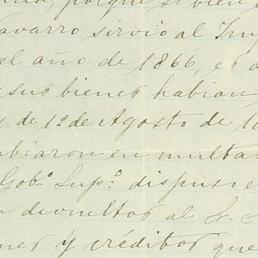 porque si bien
avarro, sirvió al Imp
el año de 1866, es a
sus bienes habian
de 1º de Agosto de 18
biaron en multa
Gobº Supº dispuso e
devueltos al S.
nes y créditos que